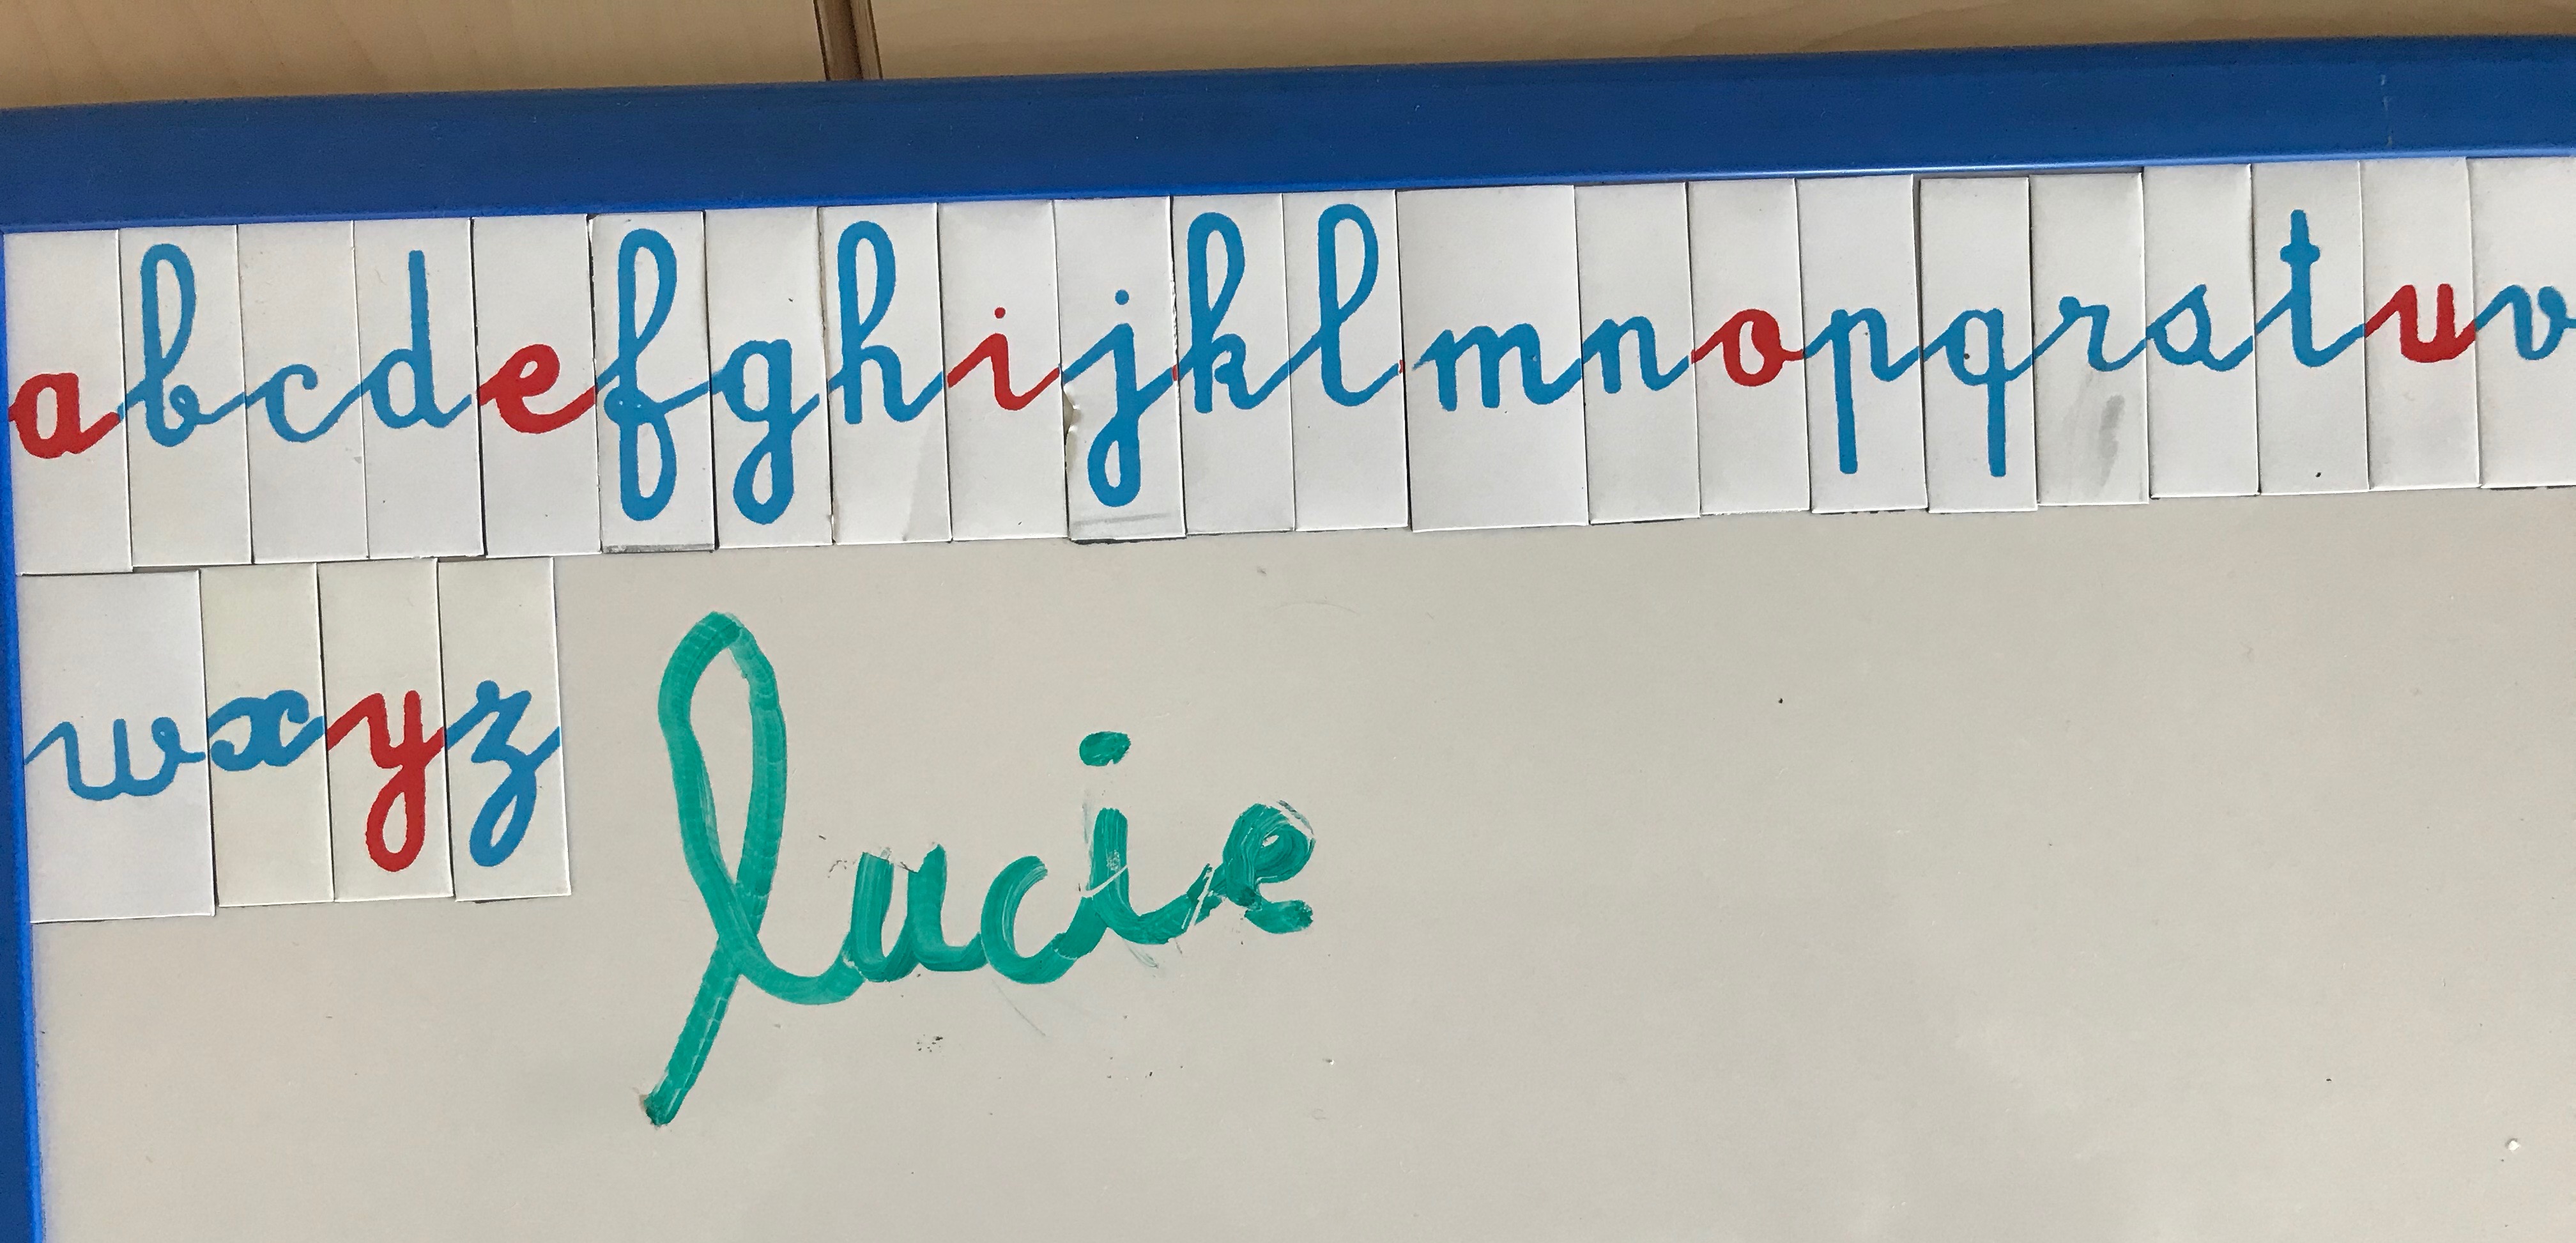 abcdefghijklmnopqrstuv
wxyz
lucie